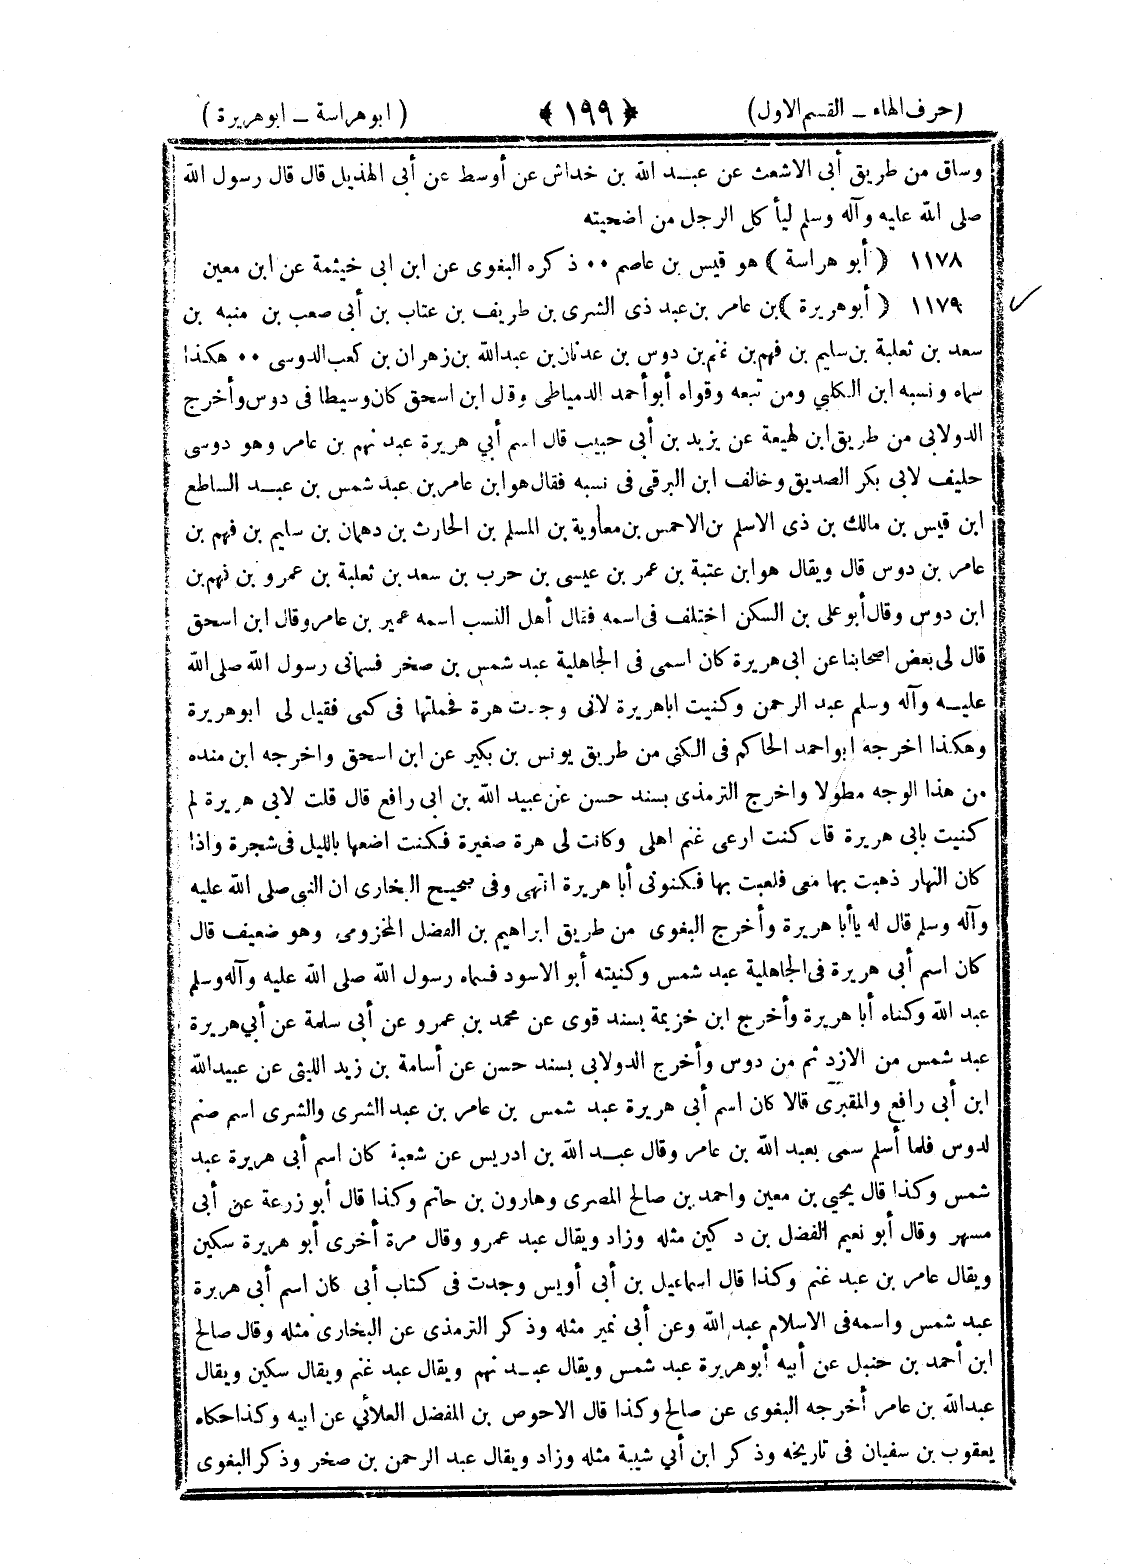 (حرف الهاء ــ القسم الاول) ﴿ ١٩٩ ﴾ ( ابو هراسة ــ ابو هريرة )
وساق من طريق أبى الاشعث عن عبــد الله بن خداش عن أوسط عن أبى الهذيل قال قال رسول الله
صلى الله عليه وآله وسلم ليأ كل الرجل من اضحيته
١١٧٨ ( أبو هراسة ) هو قيس بن عاصم ٠٠ ذكره البغوى عن ابن ابى خيثمة عن ابن معين
١١٧٩ ( أبوهريرة ) بن عامر بن عبد ذى الشرى بن طريف بن عتاب بن أبى صعب بن منبه بن
سعد بن ثعلبة بن سليم بن فهم بن غنم بن دوس بن عدنان بن عبدالله بن زهران بن كعب الدوسى ٠٠ هكذا
سماه ونسبه ابن الكلبي ومن تبعه وقواه أبو أحمد الدمياطى وقل ابن اسحق كان وسيطا فى دوس وأخرج
الدولابى من طريق ابن لهيعة عن يزيد بن أبى حبيب قال اسم أبي هريرة عبد نهم بن عامر وهو دوسى
حليف لابى بكر الصديق وخالف ابن البرقى فى نسبه فقال هو ابن عامر بن عبد شمس بن عبــد الساطع
ابن قيس بن مالك بن ذى الاسلم بن الاحمس بن معاوية بن المسلم بن الحارث بن دهمان بن سليم بن فهم بن
عامر بن دوس قال ويقال هو ابن عتبة بن عمر بن عيسى بن حرب بن سعد بن ثعلبة بن عمرو بن فهم بن
ابن دوس وقال أبو على بن السكن اختلف فى اسمه فقال أهل النسب اسمه عمير بن عامر وقال ابن اسحق
قال لى بعض اصحابنا عن ابى هريرة كان اسمى فى الجاهلية عبد شمس بن صخر فسمانى رسول الله صلى الله
عليــه وآله وسلم عبد الرحمن وكنيت اباهريرة لانى وجدت هرة فحملتها فى كمى فقيل لى ابو هريرة
وهكذا اخرجه ابو احمد الحاكم فى الكنى من طريق يونس بن بكير عن ابن اسحق واخرجه ابن منده
من هذا الوجه مطولا واخرج الترمذى بسند حسن عن عبيد الله بن ابى رافع قال قلت لابى هريرة لم
كنيت بابى هريرة قال كنت ارعى غنم اهلى وكانت لى هرة صغيرة فكنت اضعها بالليل فى شجرة واذا
كان النهار ذهبت بها معى فلعبت بها فكنونى أبا هريرة انتهى وفى صحيح البخارى ان النبى صلى الله عليه
وآله وسلم قال له يا أبا هريرة وأخرج البغوى من طريق ابراهيم بن الفضل المخزومى وهو ضعيف قال
كان اسم أبى هريرة فى الجاهلية عبد شمس وكنيته أبو الاسود فسماه رسول الله صلى الله عليه وآله وسلم
عبد الله وكناه أبا هريرة وأخرج ابن خزيمة بسند قوى عن محمد بن عمرو عن أبى سلمة عن أبي هريرة
عبد شمس من الازد ثم من دوس وأخرج الدولابى بسند حسن عن أسامة بن زيد الليثى عن عبيدالله
ابن أبى رافع والمقبرى قالا كان اسم أبى هريرة عبد شمس بن عامر بن عبد الشرى والشرى اسم صنم
لدوس فلما أسلم سمى بعبد الله بن عامر وقال عبــد الله بن ادريس عن شعبة كان اسم أبى هريرة عبد
شمس وكذا قال يحيي بن معين واحمد بن صالح المصرى وهارون بن حاتم وكذا قال أبو زرعة عن أبى
مسهر وقال أبو نعيم الفضل بن دكين مثله وزاد ويقال عبد عمرو وقال مرة أخرى أبو هريرة سكين
ويقال عامر بن عبد غنم وكذا قال اسماعيل بن أبى أويس وجدت فى كتاب أبى كان اسم أبى هريرة
عبد شمس واسمه فى الاسلام عبد الله وعن أبى نمير مثله وذكر الترمذى عن البخارى مثله وقال صالح
ابن أحمد بن حنبل عن أبيه أبو هريرة عبد شمس ويقال عبــد نهم ويقال عبد غنم ويقال سكين ويقال
عبدالله بن عامر أخرجه البغوى عن صالح وكذا قال الاحوص بن المفضل العلائي عن ابيه وكذا حكاه
يعقوب بن سفيان فى تاريخه وذكر ابن أبي شيبة مثله وزاد ويقال عبد الرحمن بن صخر وذكر البغوى